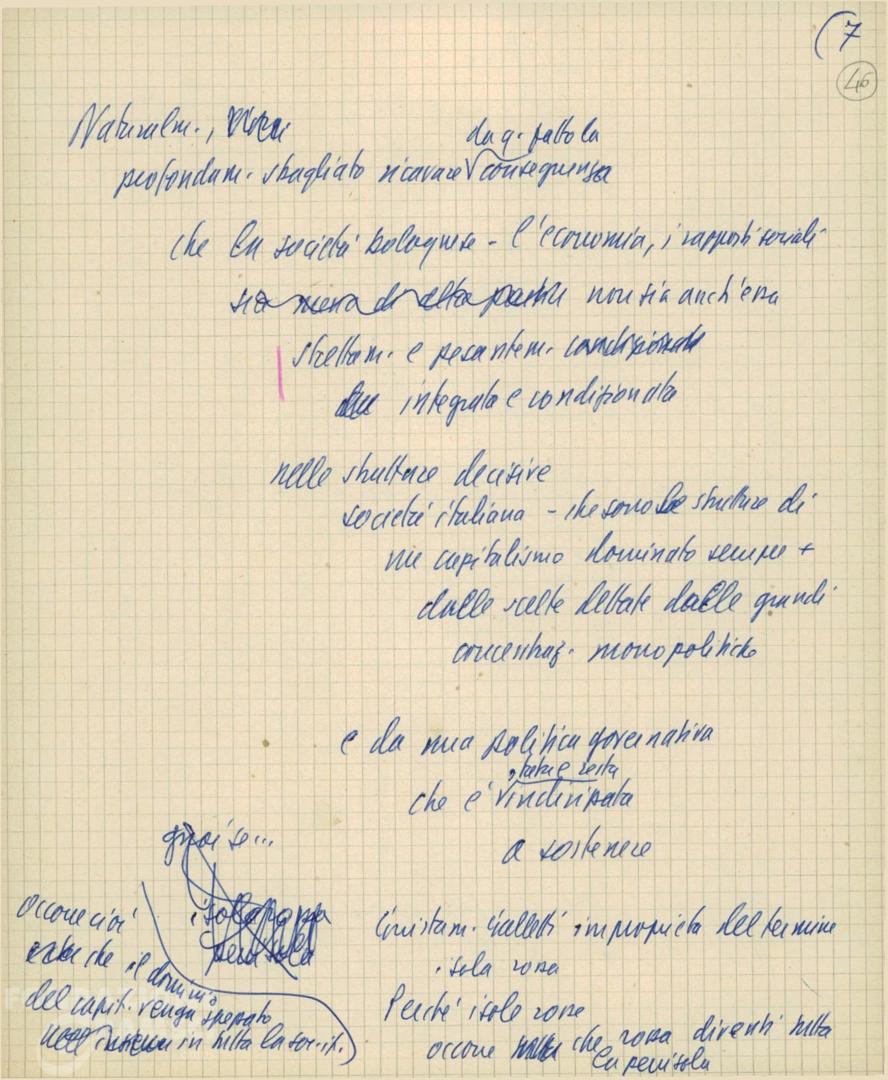 (7
46
Naturalm.,
da q. fatto la
profondam. sbagliato ricavare √ conseguenza
che la società bolognese - l'economia, i rapporti sociali
sia non sia anch'essa
strettam. e pesantem. condizionata
integrata e condizionata
nelle strutture decisive
società italiana - che sono le strutture di
un capitalismo dominato sempre +
dalle scelte dettate dalle grandi
concentraz. monopolitiche
e da una politica governativa
che è √ indirizzata
a sostenere
guai se...
isola rossa
penisola
occorre cioè
che il dominio
del capit. venga spezzato
in tutta la soc. it.
Giustam. Galletti improprietà del termine
isola rossa
Perché isole rosse
occorre che rossa diventi tutta
la penisola